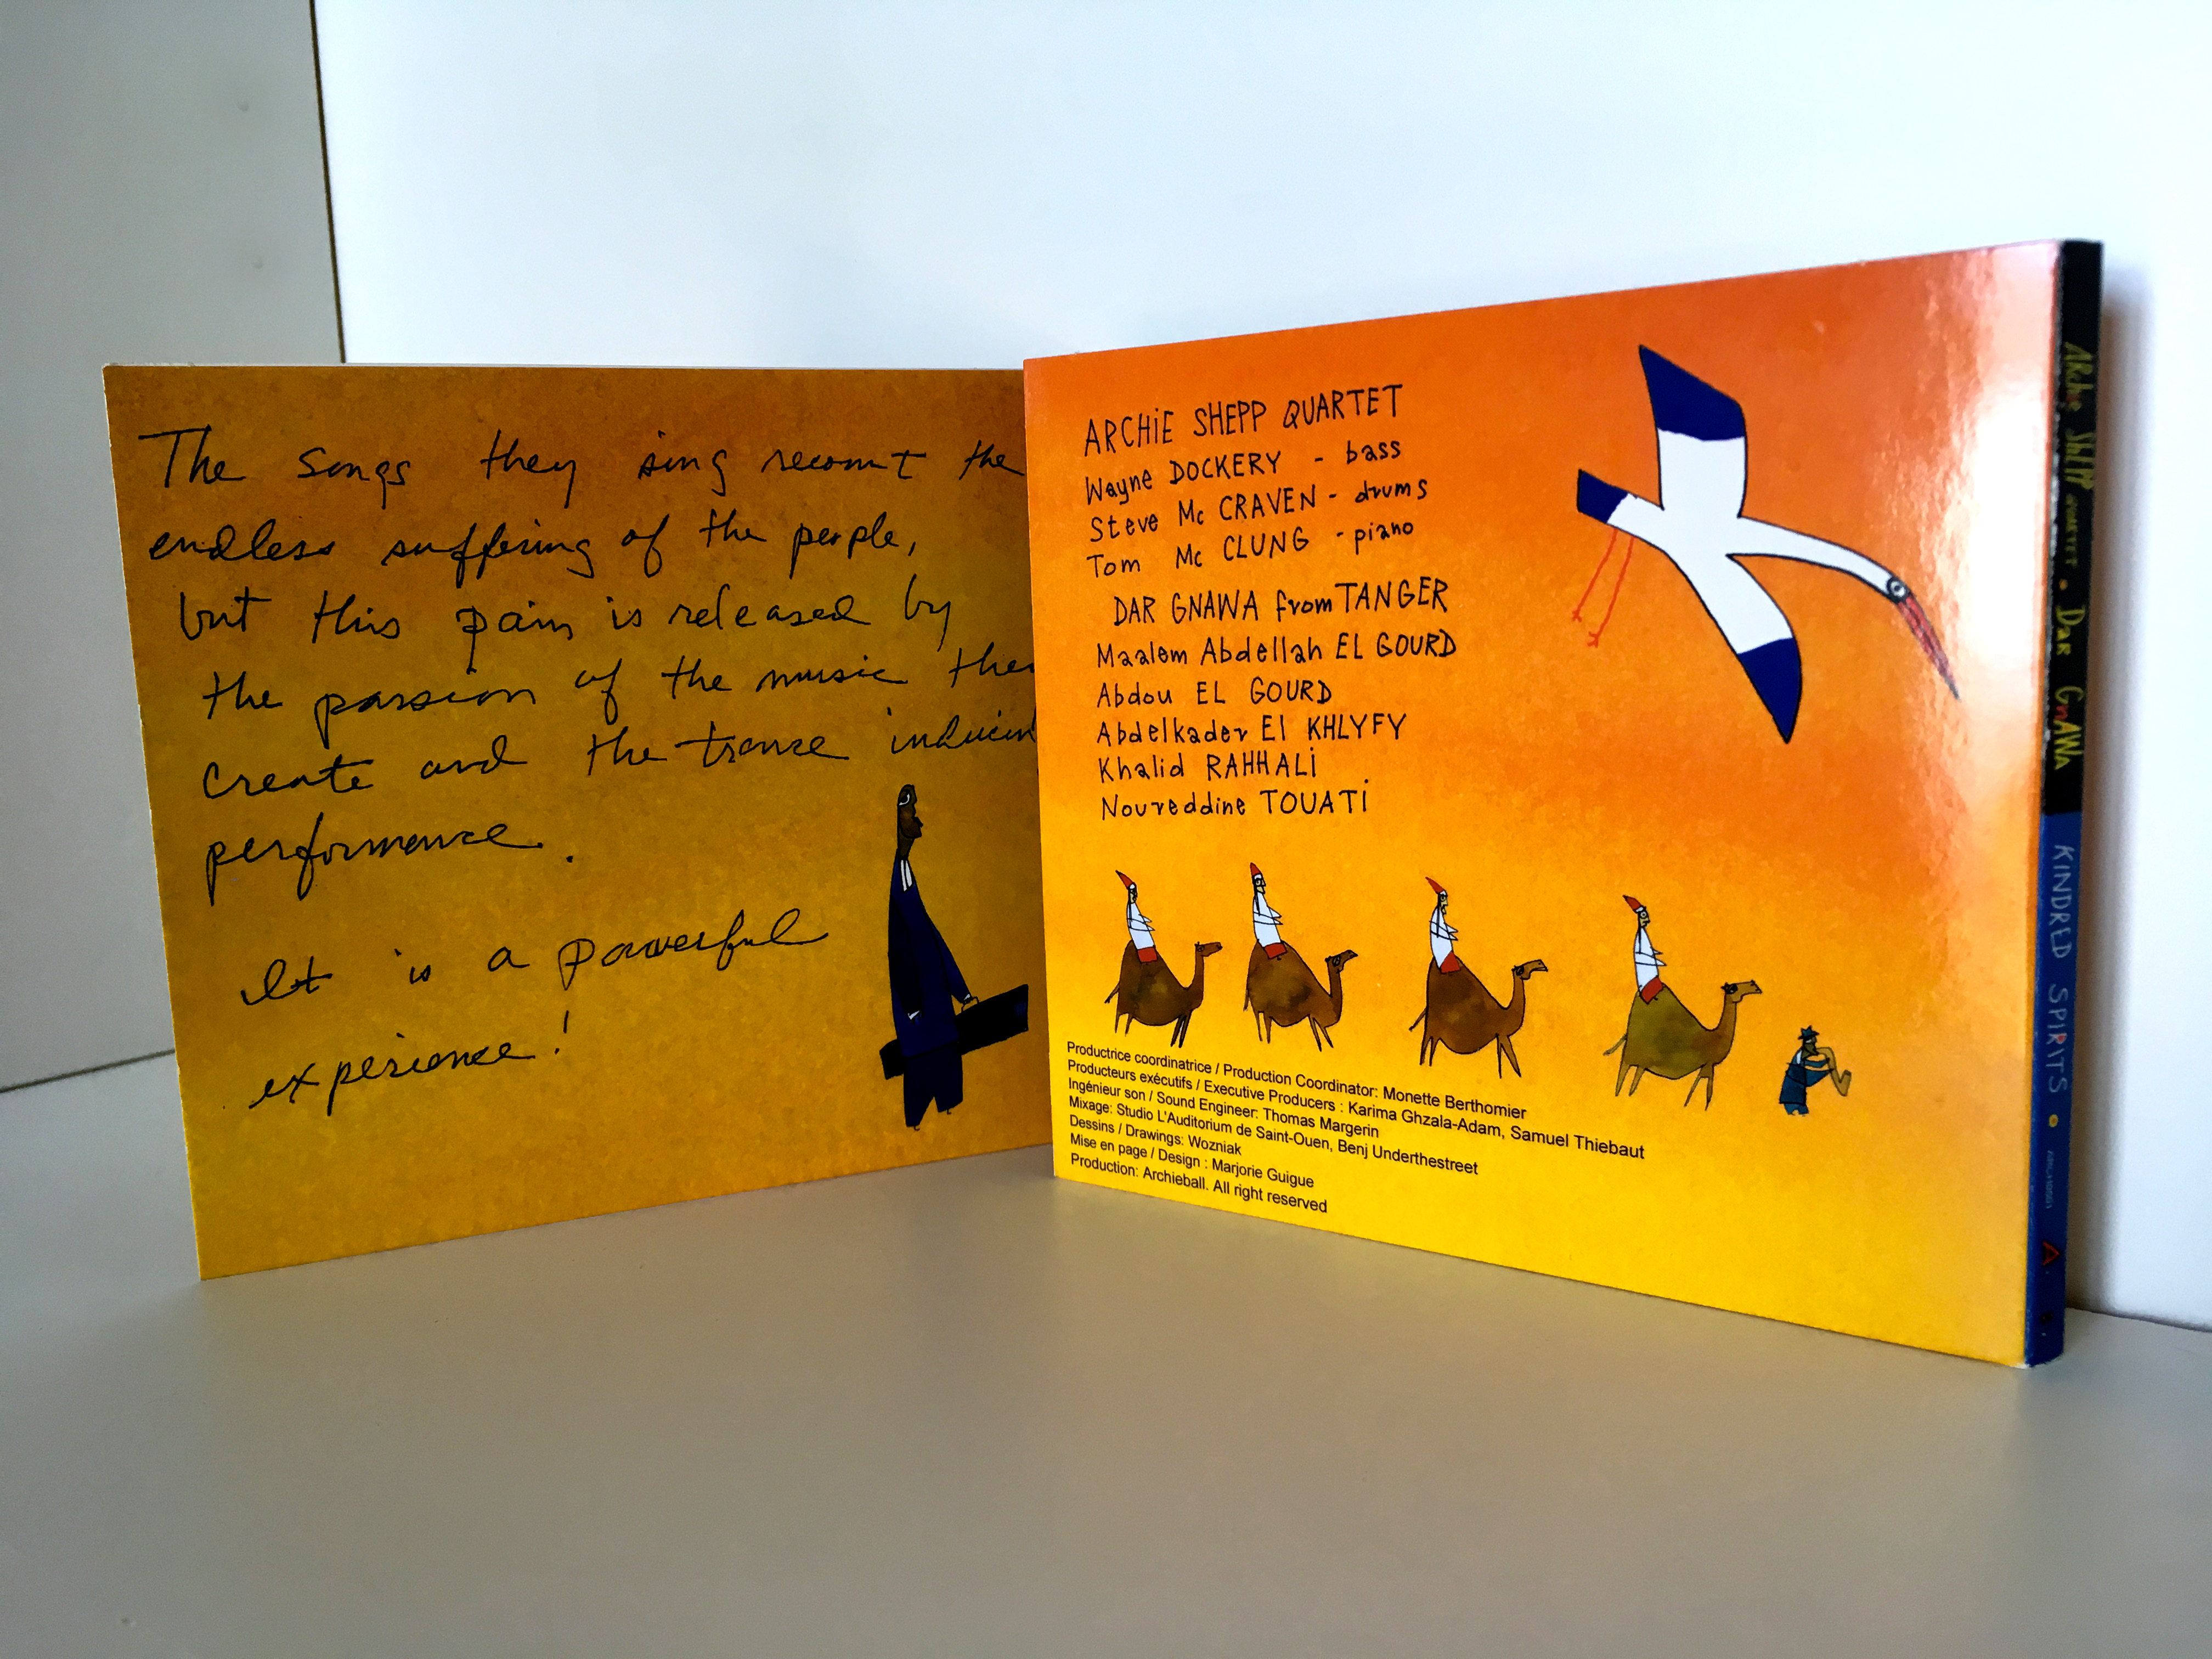 The songs they sing recount the
endless suffering of the people,
but this pain is released by
the passion of the music they
create and the trance inducin
performance.
It is a powerful
experience!
ARCHiE SHEPP QUARTET
Wayne DOCKERY - bass
Steve Mc CRAVEN - drums
Tom Mc CLUNG - piano
DAR GNAWA from TANGER
Maalem Abdellah EL GOURD
Abdou EL GOURD
Abdelkader El KHLYFY
Khalid RAHHALi
Noureddine TOUATi
Productrice coordinatrice / Production Coordinator: Monette Berthomier
Producteurs exécutifs / Executive Producers : Karima Ghzala-Adam, Samuel Thiebaut
Ingénieur son / Sound Engineer: Thomas Margerin
Mixage: Studio L'Auditorium de Saint-Ouen, Benj Underthestreet
Dessins / Drawings: Wozniak
Mise en page / Design : Marjorie Guigue
Production: Archieball. All right reserved
ARchie SHEPP QUARTET • DAR GnAWA KINDRED SPIRITS •